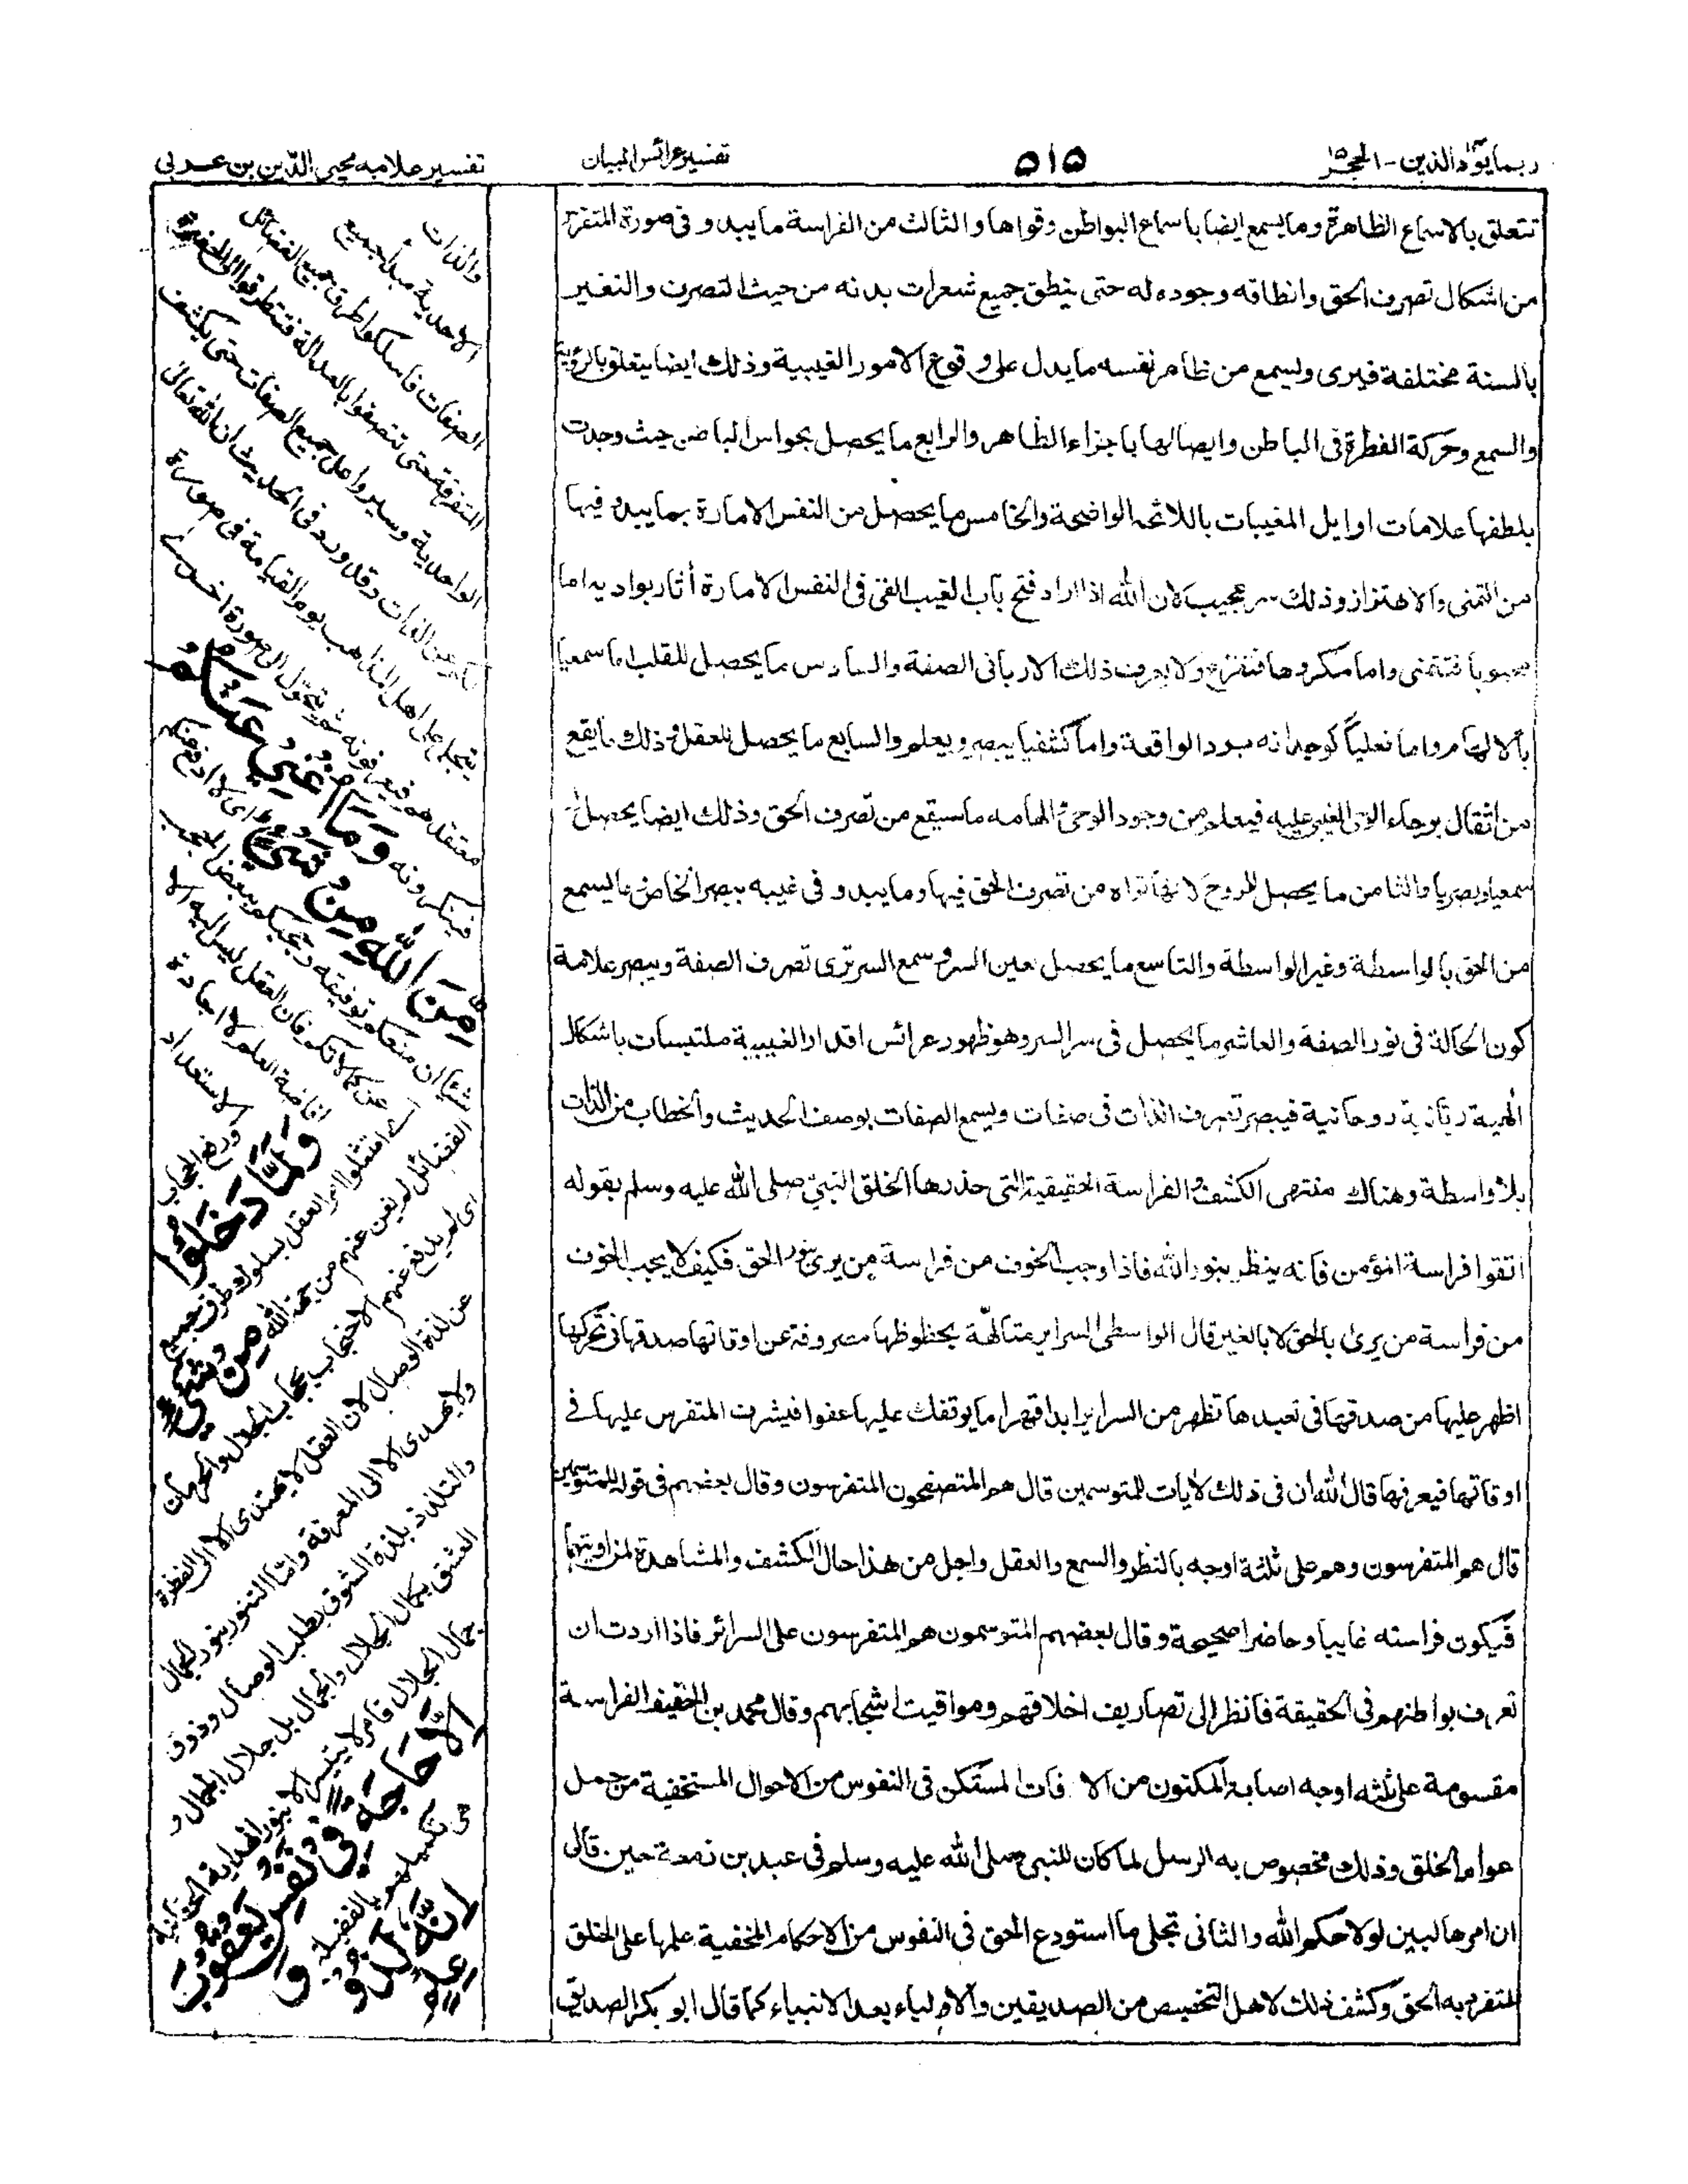 ربما يود الذين - الحجر ١٥
٥١٥
تفسير عرائس البيان
تفسير علامه محيي الدين بن عربى
تتعلق بالاسماع الظاهرة وما يسمع ايضا باسماع البواطن وقواها والثالث من الفراسة ما يبدو فى صورة المتفرس
من اشكال تصرف الحق وانطاقه وجوده له حتى ينطق جميع شعرات بدنه من حيث التصرف والتغير
بالسنة مختلفة فيرى ويسمع من ظاهر نفسه ما يدل على وقوع الامور الغيبية وذلك ايضا يتعلق بالرؤية
والسمع وحركة الفطرة فى الباطن وايصالها باجزاء الظاهر والرابع ما يحصل بحواس الباطن حيث وجدت
بلطفها علامات اوايل المغيبات باللائحة الواضحة والخامس ما يحصل من النفس الامارة بما يبدو فيها
من التمنى والاهتزاز وذلك سر عجيب لان الله اذا اراد فتح باب الغيب القى فى النفس الامارة أثار بواديه اما
محبوبا فتتمنى واما مكروها فتفزع ولا يعرف ذلك الا ربانى الصفة والسادس ما يحصل للقلب اما سمعيا
بالالهام واما فعلياً كوجدانه برد الواقعة واما كشفيا يبصر ويعلم والسابع ما يحصل للعقل وذلك ما يقع
من اثقال برحاء الوحى الغيبى عليه فيعلم من وجود الوحى الهامه ما سيقع من تصرف الحق وذلك ايضا يحصل
سمعيا وبصريا والثامن ما يحصل للروح لانها تراه من تصرف الحق فيها وما يبدو فى غيبه ببصر الخاص ما يسمع
من الحق بالواسطة وغير الواسطة والتاسع ما يحصل لعين السر وسمع السر ترى تصرف الصفة ويبصر علامة
كون الحالة فى نور الصفة والعاشر ما يحصل فى سر السر وهو ظهور عرائس اقدار الغيبية ملتبسات باشكال
الهية ربانية روحانية فيبصر تصرف الذات فى صفات ويسمع الصفات بوصف الحديث والخطاب من الذات
بلا واسطة وهناك منتهى الكشف والفراسة الحقيقية التى حذرها الخلق النبى صلى الله عليه وسلم بقوله
اتقوا فراسة المؤمن فانه ينظر بنور الله فاذا وجب الخوف من فراسة من يرى بنور الحق فكيف لا يجب الخوف
من فراسة من يرى بالحق لا بالغير قال الواسطى السراير متالهّة بحظوظها مصروفة عن اوقاتها صدقها فى تحركها
اظهر عليها من صدقها فى تعبدها تظهر من السراير ابدا قهرا ما يوتفك عليها عفوا فيشرف المتفرس عليها فے
اوقاتها فيعرفها قال الله ان فى ذلك لأيات للمتوسمين قال هم المتصفحون المتفرسون وقال بعضهم فى قوله للمتوسمين
قال هم المتفرسون وهم على ثلثة اوجه بالنظر والسمع والعقل واجل من هذا حال الكشف والمشاهدة
فيكون فراسته غايبا وحاضرا صحيحة وقال بعضهم المتوسمون هم المتفرسون على السرائر فاذا اردت ان
تعرف بواطنهم فى الحقيقة فانظر الى تصاريف اخلاقهم ومواقيت اشجابهم وقال محمد بن الخفيف الفراسة
مقسومة على ثلثه اوجه اصابة المكنون من الافات المستكن فى النفوس من الاحوال المستخفية من جمل
عوام الخلق وذلك مخصوص به الرسل لما كان للنبى صلى الله عليه وسلم فى عبد بن زمعة حين قال
ان امرها لبين لولا حكم الله والثانى تجلى ما استودع الحق فى النفوس من الاحكام المخفية علمها على الخلق
المتفرد به الحق وكشف ذلك لاهل التخصيص من الصديقين والاولياء بعد الانبياء كما قال ابو بكر الصديق
والذات
الاحدية مبدأ جميع
الصفات فاسلكوا طرق جميع الفضائل
المتفرقة حتى تتصفوا بالعدالة فتتطرقوا الى الحضرة
الواحدية وسيروا على جميع الصفات حتى يكشف
لكم عن الذات وقد ورد فى الحديث ان الله تعالى
يتجلى على اهل المذاهب يوم القيامة فى صورة
معتقدهم فيعرفونه ثم يتحول الى صورة اخرے
فينكرونه وَمَآ اُغْنِىْ عَنْكُمْ
مِّنَ اللّٰهِ مِنْ شَىْءٍ اى لا ادفع عنكم
شيئا ان منعكم توفيقه وحجبكم ببعض الحجب
عن كمالاتكم فان العقل ليس اليه الا
افاضة العلم لا اجادة
الاستعداد
ورفع الحجاب
وَلَمَّا دَخَلُوْا
اے امتثلوا امر العقل بسلوك طرق جميع
الفضائل لم يغن عنهم من جهة الله مِنْ شَىْءٍ
اى لم يدفع عنهم الاحتجاب بحجاب الجلال والحرمان
عن لذة الوصال لان العقل لا يهتدى الا الى الفطرة
ولا يهدى الا الى المعرفة واما التنور بنور الجمال
والتلذذ بلذة الشوق بطلب الوصال وذوق
العشق بكمال الجلال والجمال بل جلال الجمال و
جمال الجلال فامر لا يتيسر الا بنور الهداية الحقانية
اِلَّا حَاجَةً فِىْ نَفْسِ يَعْقُوْبَ
هى تكميلهم بالفضيلة وَ
اِنَّهٗ لَذُوْ
عِلْمٍ